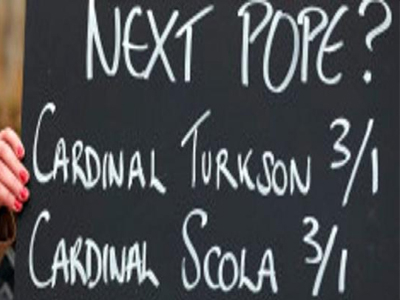 NEXT POPE?
CARDINAL TURKSON 3/1
CARDINAL SCOLA 3/1